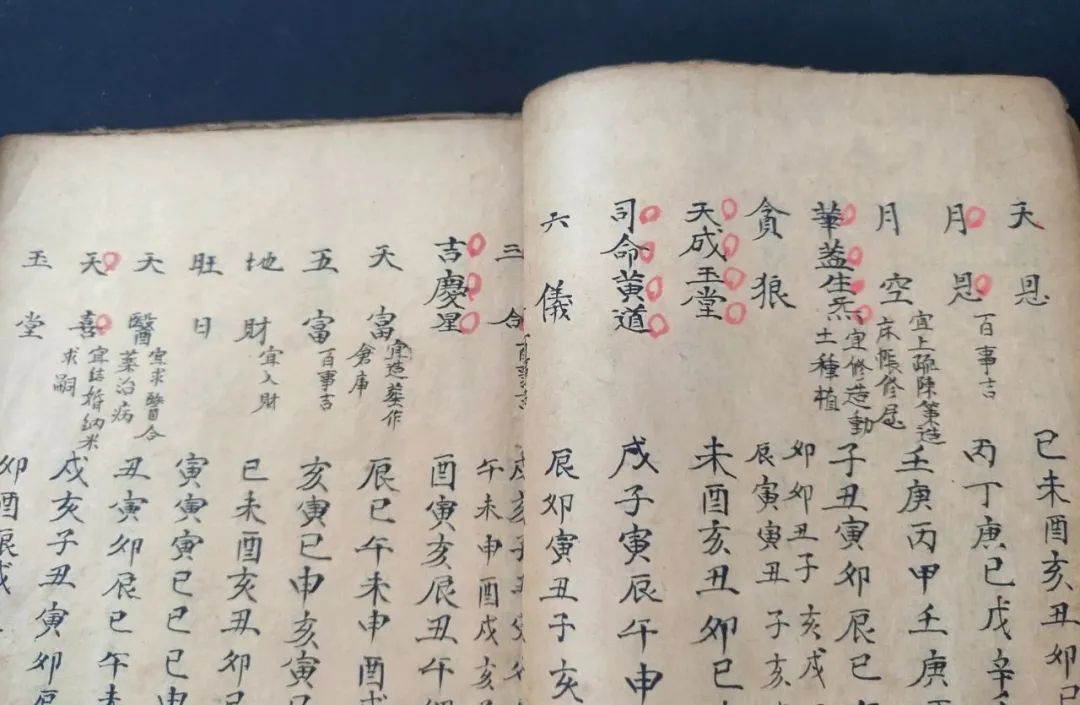 天恩 巳未酉亥丑卯巳
月恩 百事吉 丙丁庚巳戊辛壬
月空 宜上疏陳策造床帳修 壬庚丙甲壬庚丙
華蓋生炁 宜修造動土種植 子丑寅卯辰巳午
貪狼 卯卯丑子亥戌
辰寅寅丑子亥
天成玉堂 未酉亥丑卯巳
司命黃道 戌子寅辰午申
六儀 辰卯寅丑子亥
三合 百事吉
午未申酉戌亥
吉慶星 酉寅亥辰丑午
天富 宜造葬作倉庫 辰巳午未申酉戌
五富 百事吉 亥寅巳申亥寅巳
地財 宜入財 巳未酉亥丑卯巳
旺日 寅寅寅巳巳巳申
天醫 宜求醫合藥治病 丑寅卯辰巳午未
天喜 宜結婚納采求嗣 戌亥子丑寅卯辰
玉堂 卯酉辰戌